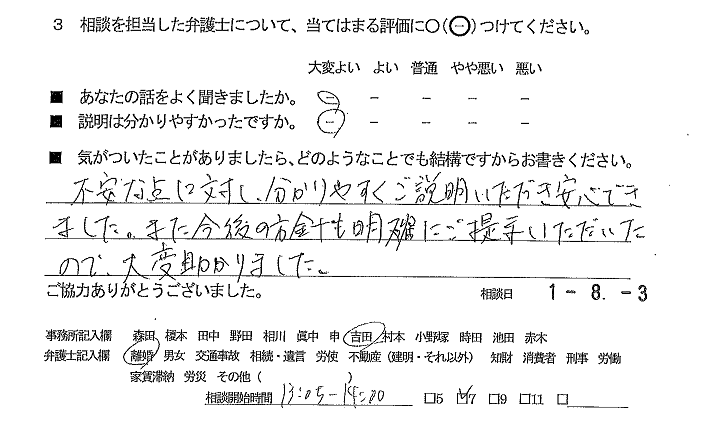 3 相談を担当した弁護士について、当てはまる評価に○(㊀)つけてください。
大変よい よい 普通 やや悪い 悪い
■ あなたの話をよく聞きましたか。 − − − − −
■ 説明は分かりやすかったですか。 − − − − −
■ 気がついたことがありましたら、どのようなことでも結構ですからお書きください。
不安な点に対し、分かりやすくご説明いただき安心でき
ました。また今後の方針も明確にご提示いただいた
ので、大変助かりました。
ご協力ありがとうございました。 相談日 1-8.-3
事務所記入欄 森田 榎本 田中 野田 相川 眞中 申 吉田 村本 小野塚 時田 池田 赤木
弁護士記入欄 離婚 男女 交通事故 相続・遺言 労使 不動産(建明・それ以外) 知財 消費者 刑事 労働
家賃滞納 労災 その他( )
相談開始時間 13:05-14:00 □5 ☑7 □9 □11 □